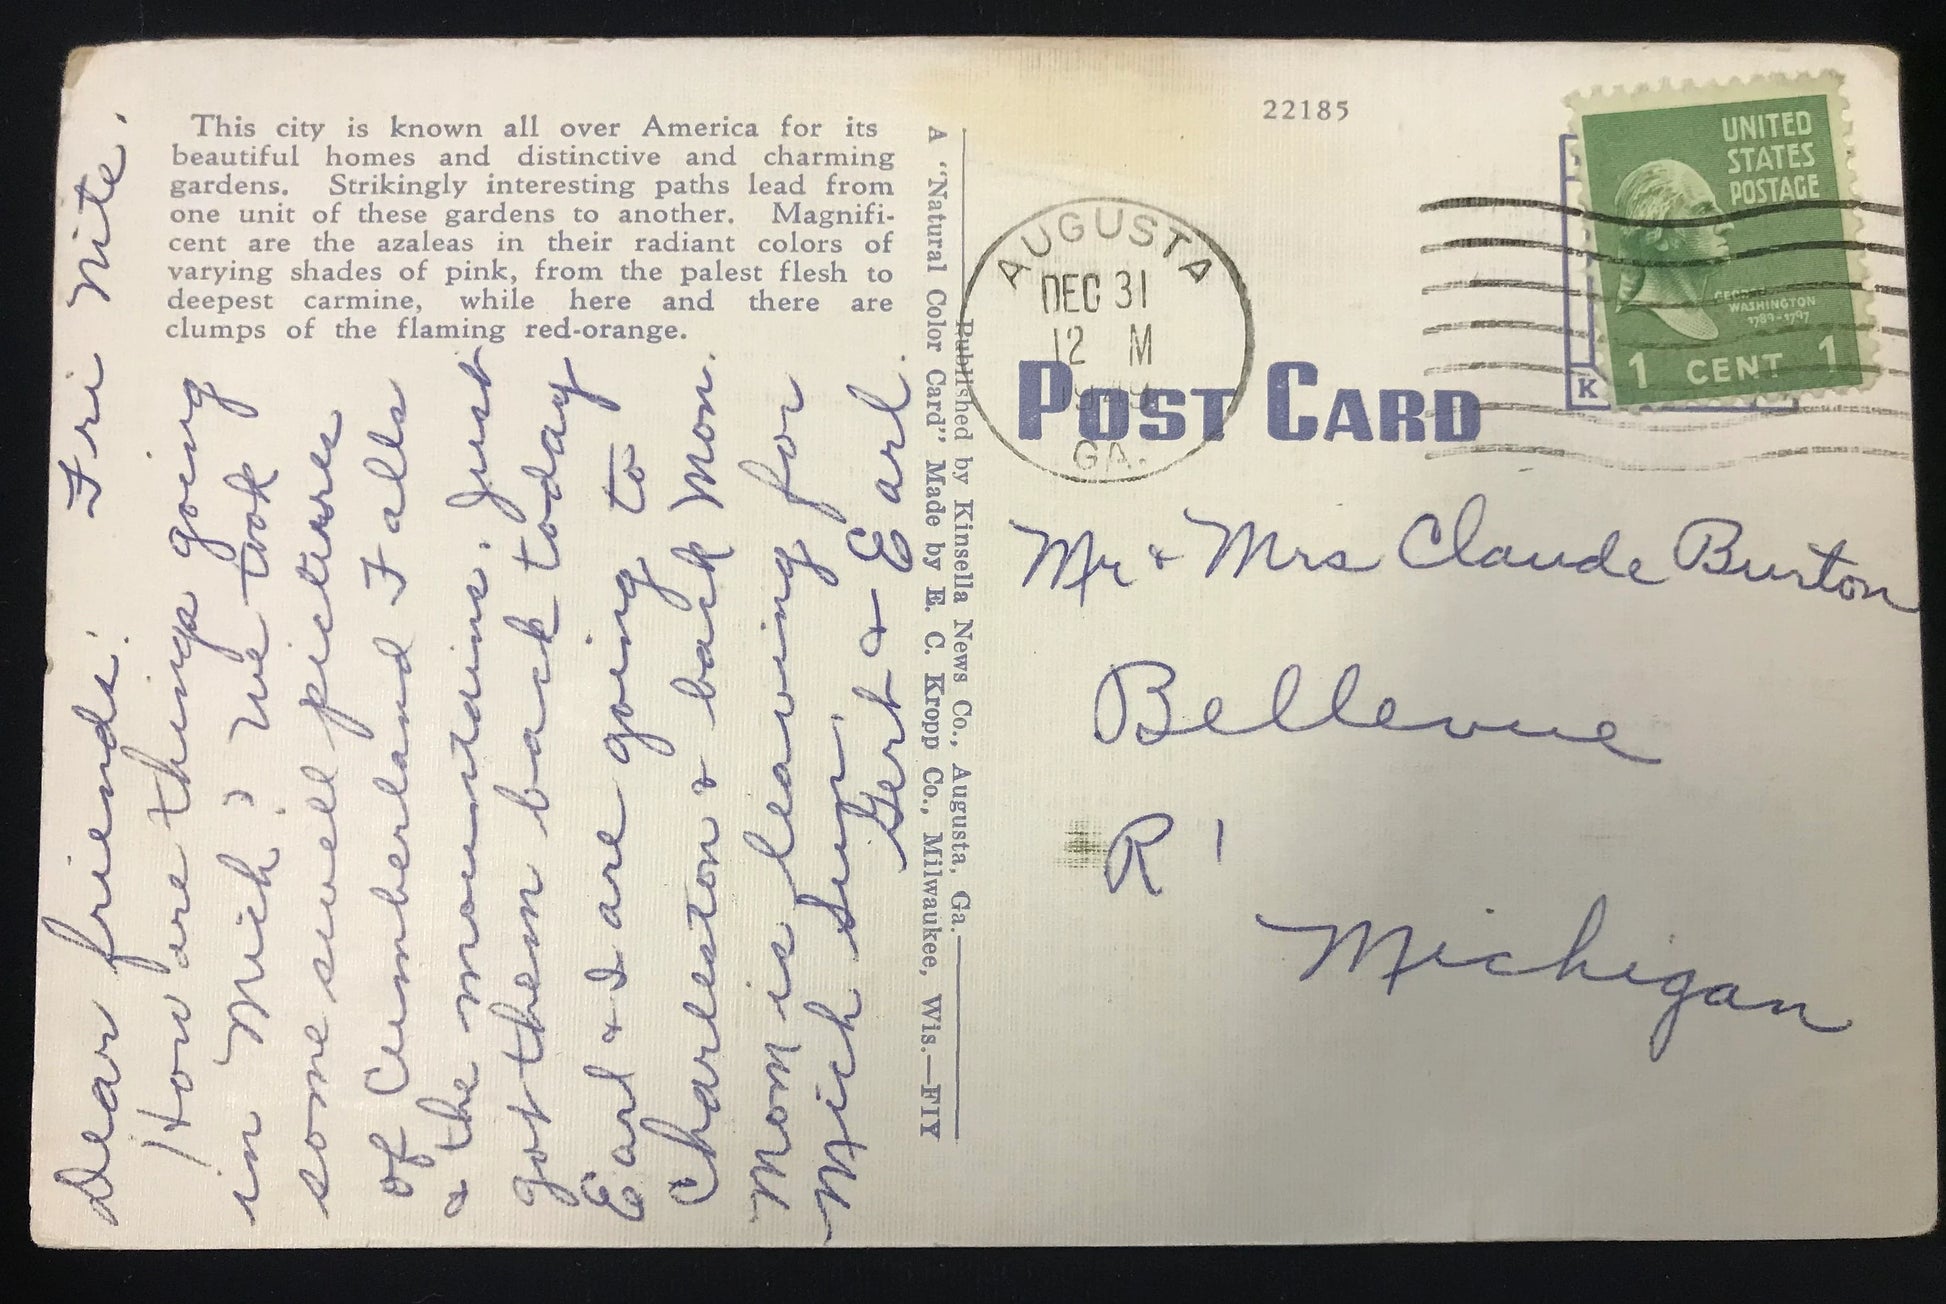 This city is known all over America for its
beautiful homes and distinctive and charming
gardens. Strikingly interesting paths lead from
one unit of these gardens to another. Magnifi-
cent are the azaleas in their radiant colors of
varying shades of pink, from the palest flesh to
deepest carmine, while here and there are
clumps of the flaming red-orange.
Fri Nite.
Dear friends:
How are things going
in Mich? We took
some swell pictures
of Cumberland Falls
& the mountains. Just
got them back today
Earl & I are going to
Charleston & back Mon.
Mom is leaving for
Mich Sun.
Gert & Earl.
A "Natural Color Card" Made by E. C. Kropp Co., Milwaukee, Wis.—FIY
Published by Kinsella News Co., Augusta, Ga.
22185
AUGUSTA
DEC 31
12 M
GA.
POST CARD
K
UNITED
STATES
POSTAGE
GEORGE
WASHINGTON
1789-1797
1 CENT 1
Mr & Mrs Claude Burton
Bellevue
R 1
Michigan